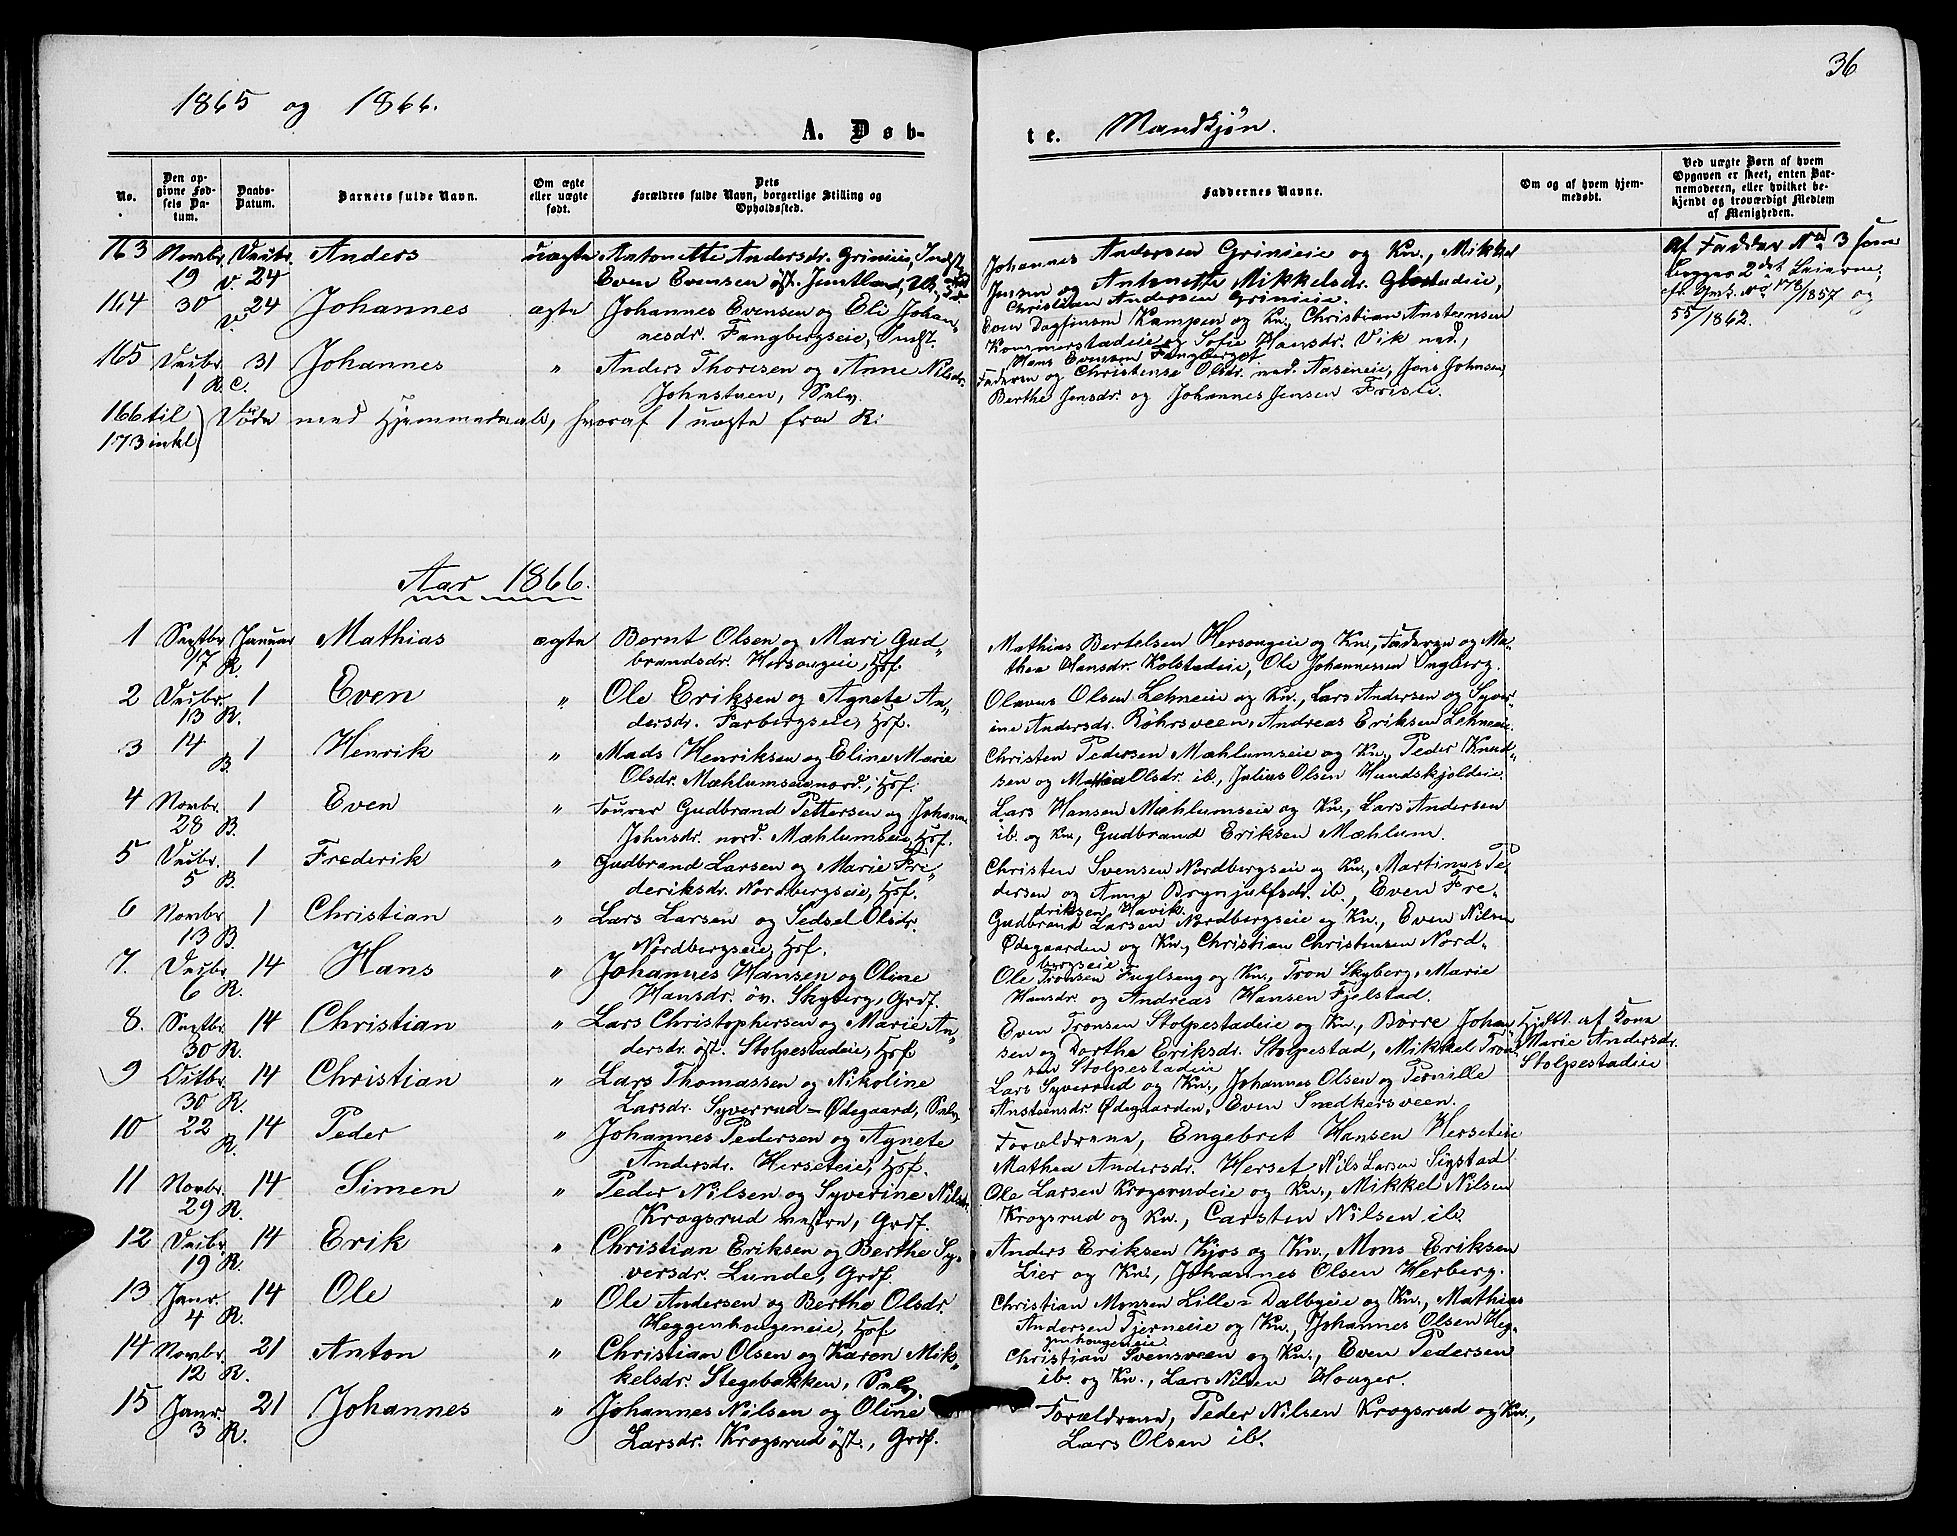 36
1865 og 1866.
A. Døb-
te. Mandkjøn.
No.
Den op-
givne Fød-
sels Da-
tum.
Daabs-
Datum.
Barnets fulde Navn.
Om ægte
eller uægte
født.
Dets
Forældres fulde Navn, borgerlige Stilling og
Opholdssted.
Faddernes Navne.
Om og af hvem hjem-
medøbt.
Ved uægte Børn af hvem
Opgaven er skeet, enten Bar-
nemoderen, eller hvilket be-
kjendt og troværdigt Medlem
af Menigheden.
163 Novbr. Decbr. Anders uægte Antonette Andersdr. Grinieie, Indst.
19 v. 24 Even Evensen öst. Jemtland,
Johannes Andersen Grinieie og Kn., Mikkel
Jensen og Antonette Mikkelsdr. Glæstadeie,
Christian Andersen Grinieie.
Af Fadder No. 3 som
2det Leierm.,
178/1857 og
55/1862.
164 30 v. 24 Johannes ægte Johannes Evensen og Eli Johan-
nesdr. Fangbergseie, Indst.
Dagfinsen Kampen og Kn., Christian Anstensen
Kommerstadeie og Sofie Hansdr. Vik ned.,
Hans Evensen Fangberget
165 Decbr. 31 Johannes " Anders Thoresen og Anne Nilsdr.
1 R. C. Johnstuen,
Faderen og Christense Olsdr. ned. Aaseneie, Jens Johnsen,
Berthe Jensdr. og Johannes Jensen Frisli.
166 til
173 inkl. Döde med Hjemmedaab, hvoraf 1 uægte fra R.
Aar 1866.
1 Septbr. Januar Mathias ægte Bernt Olsen og Mari Gud-
17 R. 1 brandsdr. Hersougeie, Hof.
Mathias Bertelsen Hersougeie og Kn., Faderen og Ma-
thea Hansdr. Kolstadeie, Ole Johannessen Ingberg.
2 Decbr. 1 Even " Ole Eriksen og Agnete An-
13 R. dersdr. Farbergseie, Hof.
Olavus Olsen Lehneie og Kn., Lars Andersen og Syver-
ine Andersdr. Röhrsveen, Andreas Eriksen Lehneeie.
3 14 1 Henrik " Mads Henriksen og Eline Marie
B. Olsdr. Mæhlumseie nord., Hof.
Christen Pedersen Mæhlumseie og Kn., Peder Knud-
sen og Mathea Olsdr. ib., Julius Olsen Hundskjoldeie.
4 Novbr. 1 Even " Gudbrand Pettersen og Johanne
28 B. Johnsdr. nord. Mæhlumseie, Hof.
Lars Hansen Mæhlumseie og Kn., Lars Andersen
ib. og Kn., Gudbrand Eriksen Mæhlum.
5 Decbr. 1 Frederik " Gudbrand Larsen og Marie Fre-
5 B. deriksdr. Nordbergseie, Hof.
Christen Svensen Nordbergseie og Kn., Martinus Pe-
dersen og Anne Brynjulfsdr. ib., Even Fre-
driksen Havik.
6 Novbr. 1 Christian " Lars Larsen og Sedsel Olsdr.
13 B. Nordbergseie, Hof.
Gudbrand Larsen Nordbergseie og Kn., Even Nilsen
Ødegaarden og Kn., Christian Christensen Nord-
bergseie.
7. Decbr. 14 Hans " Johannes Hansen og Oline
6 R. Hansdr. öv. Skyberg, Grdf.
Ole Tronsen Fuglseng og Kn., Tron Skyberg, Marie
Hansdr. og Andreas Hansen Fjelstad.
8. Septbr. 14 Christian " Lars Christophersen og Marie An-
30 R. dersdr. öst. Stolpestadeie, Hof.
Even Tronsen Stolpestadeie og Kn., Börre Johan-
sen og Dorthe Eriksdr. Stolpestad, Mikkel Tron-
sen Stolpestadeie
Hjdbt. af Kone
Marie Andersdr.
Stolpestadeie
9 Octbr. 14 Christian " Lars Thomassen og Nikoline
30 R. Larsdr. Syverrud-Ødegaard,
Lars Syverrud og Kn., Johannes Olsen og Pernille
Anstensdr. Ødegaarden, Even Snedkersveen.
10 22 14 Peder " Johannes Pedersen og Agnete
R. Andersdr. Herseteie, Hof.
Forældrene, Engebret Hansen Herseteie
Mathea Andersdr. Herset Nils Larsen Sigstad
11 Novbr. 14 Simen " Peder Nilsen og Syverine Nilsdr.
29 R. Krogsrud vestre, Grdf.
Ole Larsen Krogsrudeie og Kn., Mikkel Nilsen
Krogsrud og Kn., Carsten Nilsen ib.
12 Decbr. 14 Erik " Christian Eriksen og Berthe Sy-
19 R. versdr. Lunde, Grdf.
Anders Eriksen Kjos og Kn., Mons Eriksen
Lier og Kn., Johannes Olsen Herberg.
13 Janr. 14 Ole " Ole Andersen og Berthe Olsdr.
4 R. Heggenhougeneie, Hof.
Christian Monsen Lille-Dalbyeie og Kn., Mathias
Andersen Tjerneeie og Kn., Johannes Olsen Heg-
genhougeneie
14 Novbr. 21 Anton " Christian Olsen og Karon Mik-
12 R. kelsdr. Stegebakken,
Christian Svensveen og Kn., Even Pedersen
ib. og Kn., Lars Nilsen Houger.
15 Janr. 21 Johannes " Johannes Nilsen og Oline
3 R. Larsdr. Krogsrud öst., Grdf.
Forældrene, Peder Nilsen Krogsrud og Kn.,
Lars Olsen ib.